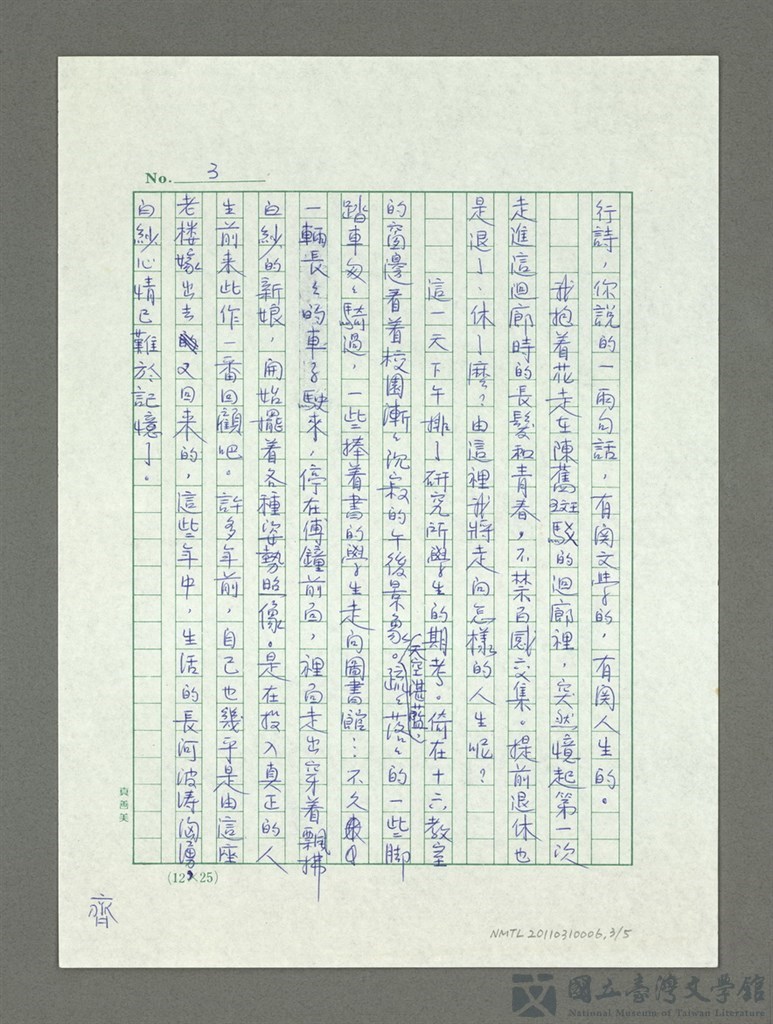 No. 3
行詩，你說的一兩句話，有関文學的，有関人生的。
我抱着花走在陳舊斑駁的迴廊裡，突然憶起第一次
走進這迴廊時的長髮和青春，不禁百感交集。提前退休也
是退了、休了麼？由這裡我將走向怎樣的人生呢？
這一天下午排了研究所學生的期考。倚在十六教室
的窗邊看着校園漸々沉寂的午後景象。天空湛藍，疏々落々的一些脚
踏車匆々騎過，一些捧着書的學生走向圖書館…不久
一輛長々的車子駛來，停在傅鐘前面，裡面走出穿着飄拂
白紗的新娘，開始擺着各種姿勢照像。是在投入真正的人
生前来些作一番回顧吧。許多年前，自己也幾乎是由這座
老楼嫁出去又回来的，這些年中，生活的長河波涛洶湧，
白紗心情已難於記憶了。
真善美
(12×25)
齊
NMTL20110310006,3/5
國立臺灣文學館
National Museum of Taiwan Literature